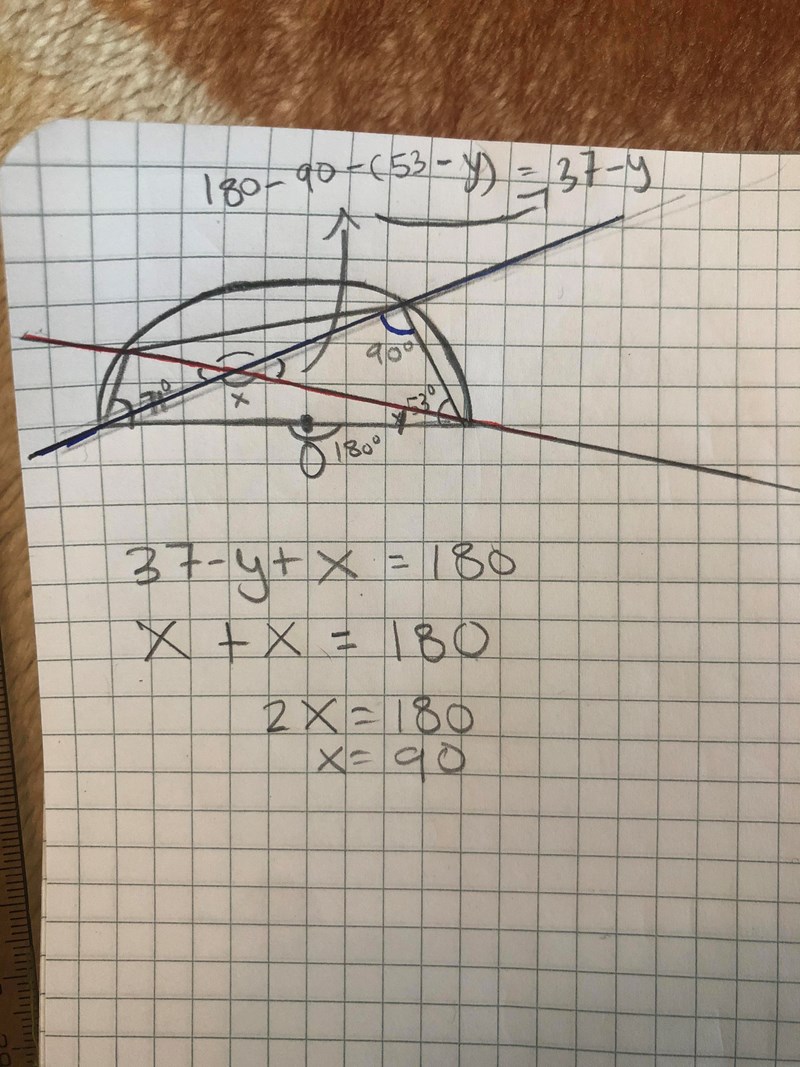 180-90-(53-y) = 37-y
90°
71°
x
y
53°
180°
O
37-y+x = 180
x + x = 180
2x = 180
x = 90